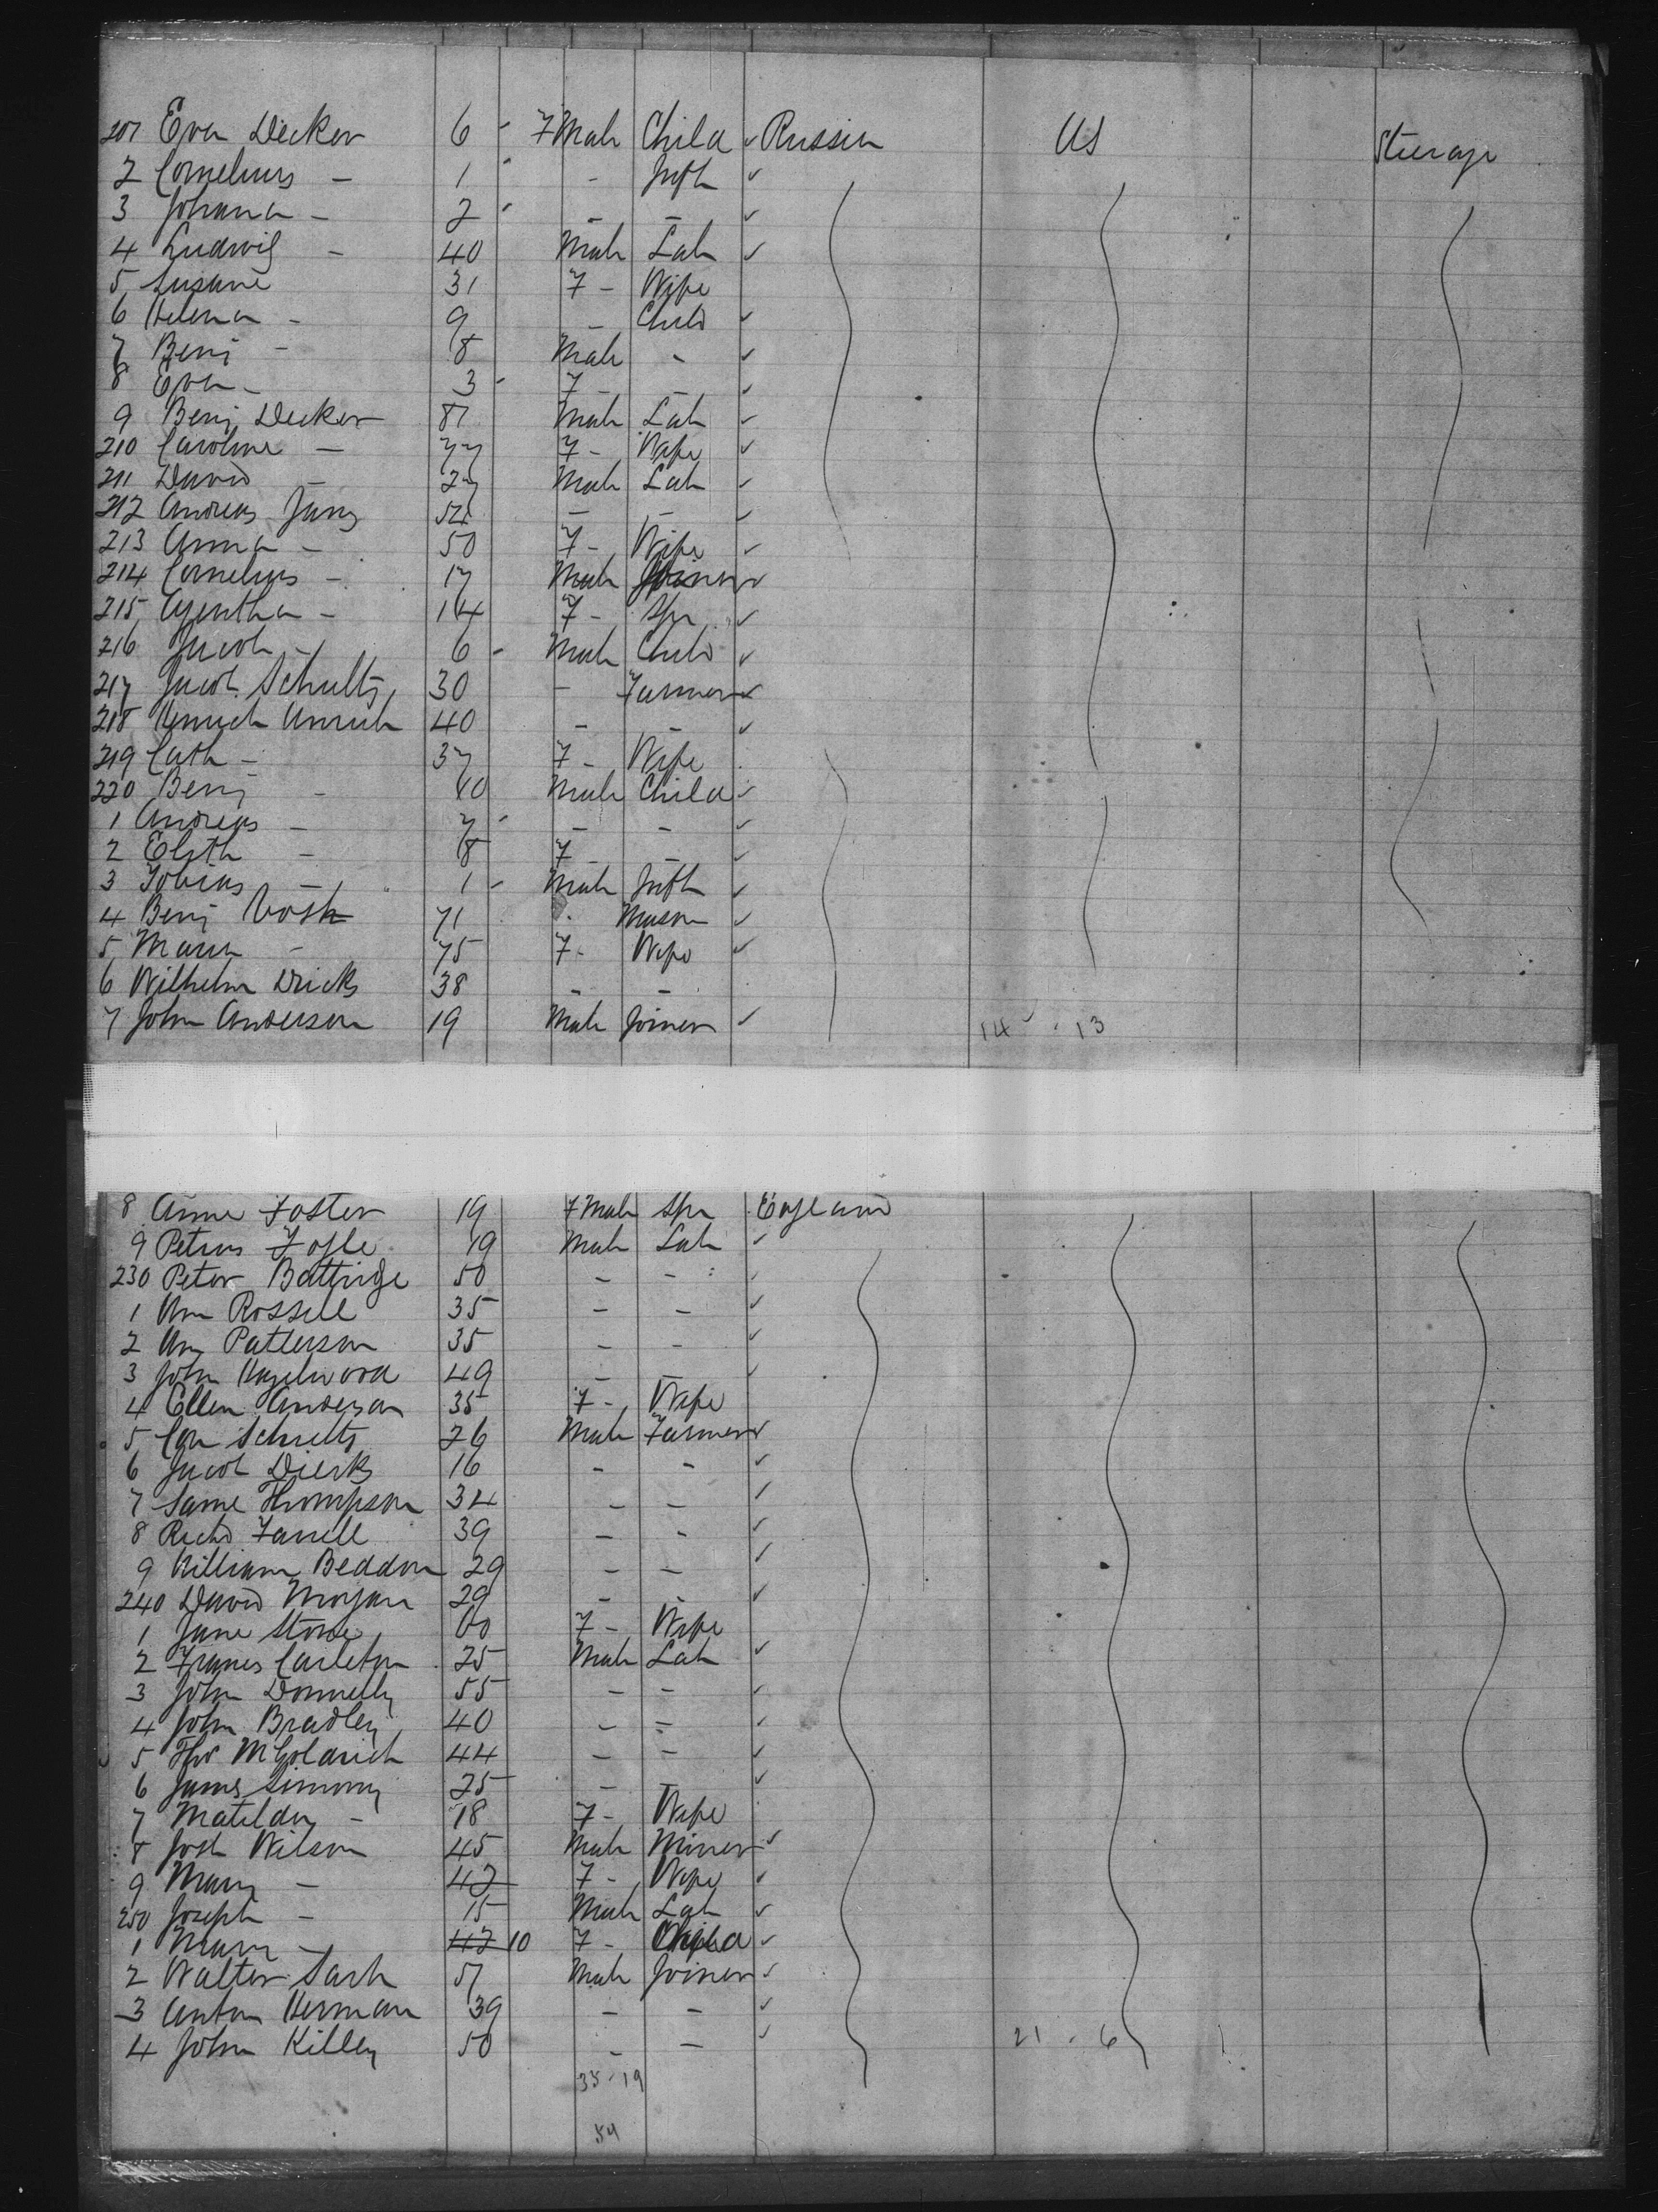 201 Eva Decker 6 - Female Child ✓ Russia US Steerage
2 Cornelius - 1 - - Inft ✓
3 Johana - 2 - - - ✓
4 Ludwig - 40 Male Lab ✓
5 Susane 31 F - Wife
6 Helena - 9 - Child ✓
7 Benj - 8 Male - ✓
8 Eva - 3 - F - - ✓
9 Benj Decker 81 Male Lab ✓
210 Caroline - 77 F - Wife ✓
211 David - 27 Male Lab ✓
212 Andreas Janz 54 - - ✓
213 Anna - 50 F - Wife ✓
214 Cornelius - 17 Male Joiner ✓
215 Agentha - 14 F - Spr ✓
216 Jacob - 6 - Male Child ✓
217 Jacob Schultz 30 - Farmer ✓
218 Henrich Unruh 40 - - ✓
219 Cath - 37 F - Wife
220 Benj - 10 Male Child ✓
1 Andreas - 7 - - - ✓
2 Elsth - 8 F - - ✓
3 Tobias - 1 - Male Inft ✓
4 Benj Voth 71 Mason ✓
5 Maria - 75 F - Wife ✓
6 Wilhelm Dirks 38 - -
7 John Anderson 19 Male Joiner ✓ 14 - 13
8 Anne Foster 19 Female Spr England
9 Petrus Fogle 19 Male Lab ✓
230 Peter Battridge 50 - - ✓
1 Wm Rossell 35 - - ✓
2 Wm Patterson 35 - - ✓
3 John Hazelwood 49 - - ✓
4 Ellen Anderson 35 F - Wife
5 Cor Schultz 26 Male Farmer ✓
6 Jacob Dierks 16 - - ✓
7 Same Thompson 34 - - ✓
8 Richd Farrell 39 - - ✓
9 William Beddon 29 - - ✓
240 David Morgan 29 - - ✓
1 Jane Stone 60 F - Wife
2 Frances Carleton 25 Male Lab ✓
3 John Donnelly 55 - - ✓
4 John Bradley 40 - - ✓
5 Tho McGoldrich 44 - - ✓
6 James Simmony 25 - - ✓
7 Matilda - 18 F - Wife
8 Josh Wilson 45 Male Miner ✓
9 Mary - 42 F - Wife ✓
250 Joseph - 15 Male Lab ✓
1 Mary - 42 10 F - Child ✓
2 Walter Sarh 51 Male Joiner ✓
3 Anton Herman 39 - - ✓
4 John Killey 50 - - ✓ 21 - 6
35 - 19
54